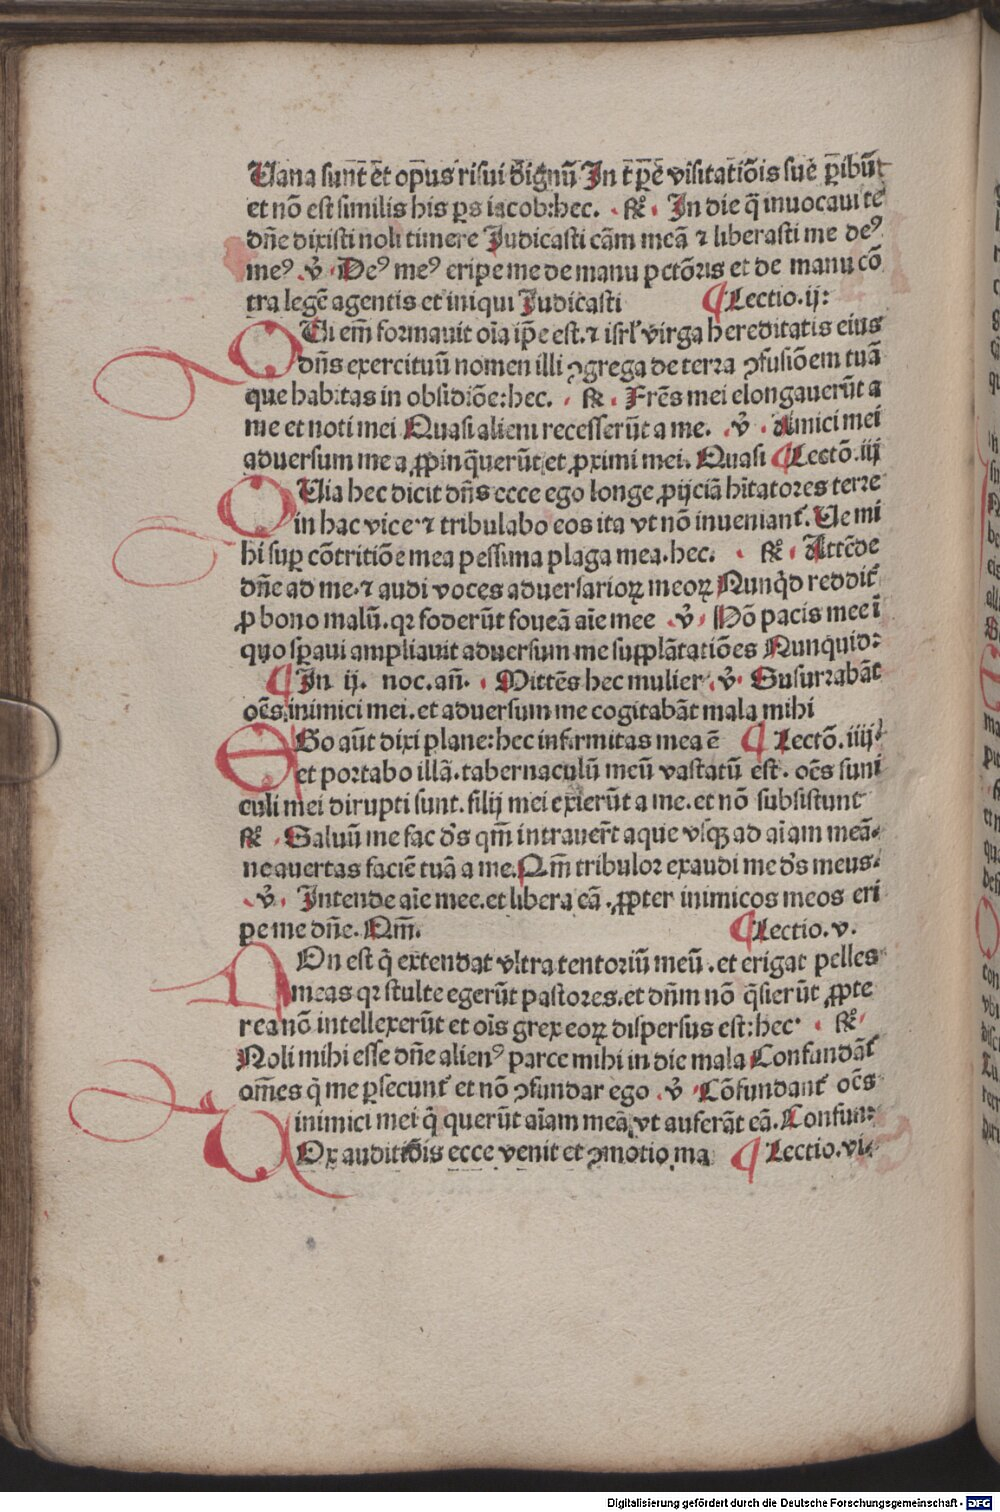 Uana sunt̄ et̄ op̄us risui dignū In t̄pē visitatiōis sue p̄ibūt
et nō est similis his ꝑs iacob:hec. ℟. In die q̄ inuocaui te
dn̄e dixisti noli timere Iudicasti cām meā ⁊ liberasti me deꝰ
meꝰ ℣ Deꝰ meꝰ eripe me de manu pctōris et de manu cō
tra legē agentis et iniqui Iudicasti ¶ Lectio.ij:
QUi em̄ formauit oīa ip̄e est.⁊ isrl̄ virga hereditatis eius
dn̄s exercituū nomen illi ꝯgrega de terra ꝯfusiōem tuā
que habitas in obsidiōe:hec. ℟. Frēs mei elongauerūt a
me et noti mei Quasi alieni recesserūt a me. ℣. Amici mei
aduersum me a ꝓpinq̄uerūt et ꝓximi mei. Quasi ¶ Lectō.iij
QUia hec dicit dn̄s ecce ego longe ꝓijciā hītatores terre
in hac vice ⁊ tribulabo eos ita vt nō inueniant̄. Ue mi
hi suꝑ cōtritiōe mea pessima plaga mea.hec. ℟. Attēde
dn̄e ad me.⁊ audi voces aduersarioꝝ meoꝝ Nunq̇d reddit̄
ꝓ bono malū.qꝛ foderūt foueā aīe mee ℣. Hō pacis mee ī
quo sꝑaui ampliauit aduersum me supplātatiōes Nunquid:
¶ In ij. noc.an̄. Mittēs hec mulier ℣. Susurrabāt
oēs inimici mei.et aduersum me cogitabāt mala mihi
EGo aūt dixi plane:hec infirmitas mea ē ¶ Lectō.iiij
et portabo illā.tabernaculū meū vastatū est. oēs funi
culi mei dirupti sunt.filij mei exierūt a me.et nō subsistunt
℟. Saluū me fac ds̄ qm̄ intrauer̄t aque vsqꝫ ad aīam meā.
ne auertas faciē tuā a me. Qm̄ tribulor exaudi me ds̄ meus.
℣. Intende aīe mee.et libera eā. ꝓpter inimicos meos eri
pe me dn̄e. Qm̄. ¶ Lectio.v.
NOn est q̇ extendat vltra tentoriū meū.et erigat pelles
meas qꝛ stulte egerūt pastores.et dn̄m nō q̄sierūt ꝓpte
rea nō intellexerūt et oīs grex eoꝝ dispersus est:hec. ℟.
Noli mihi esse dn̄e alienꝰ parce mihi in die mala Confundāt̄
om̄es q̇ me ꝑsecunt̄ et nō ꝯfundar ego ℣. Cōfundant̄ oēs
inimici mei q̇ querūt aīam meā vt auferāt eā. Confun:
UOx auditiōis ecce venit et ꝯmotio ma ¶ Lectio.vi.
Digitalisierung gefördert durch die Deutsche Forschungsgemeinschaft - DFG